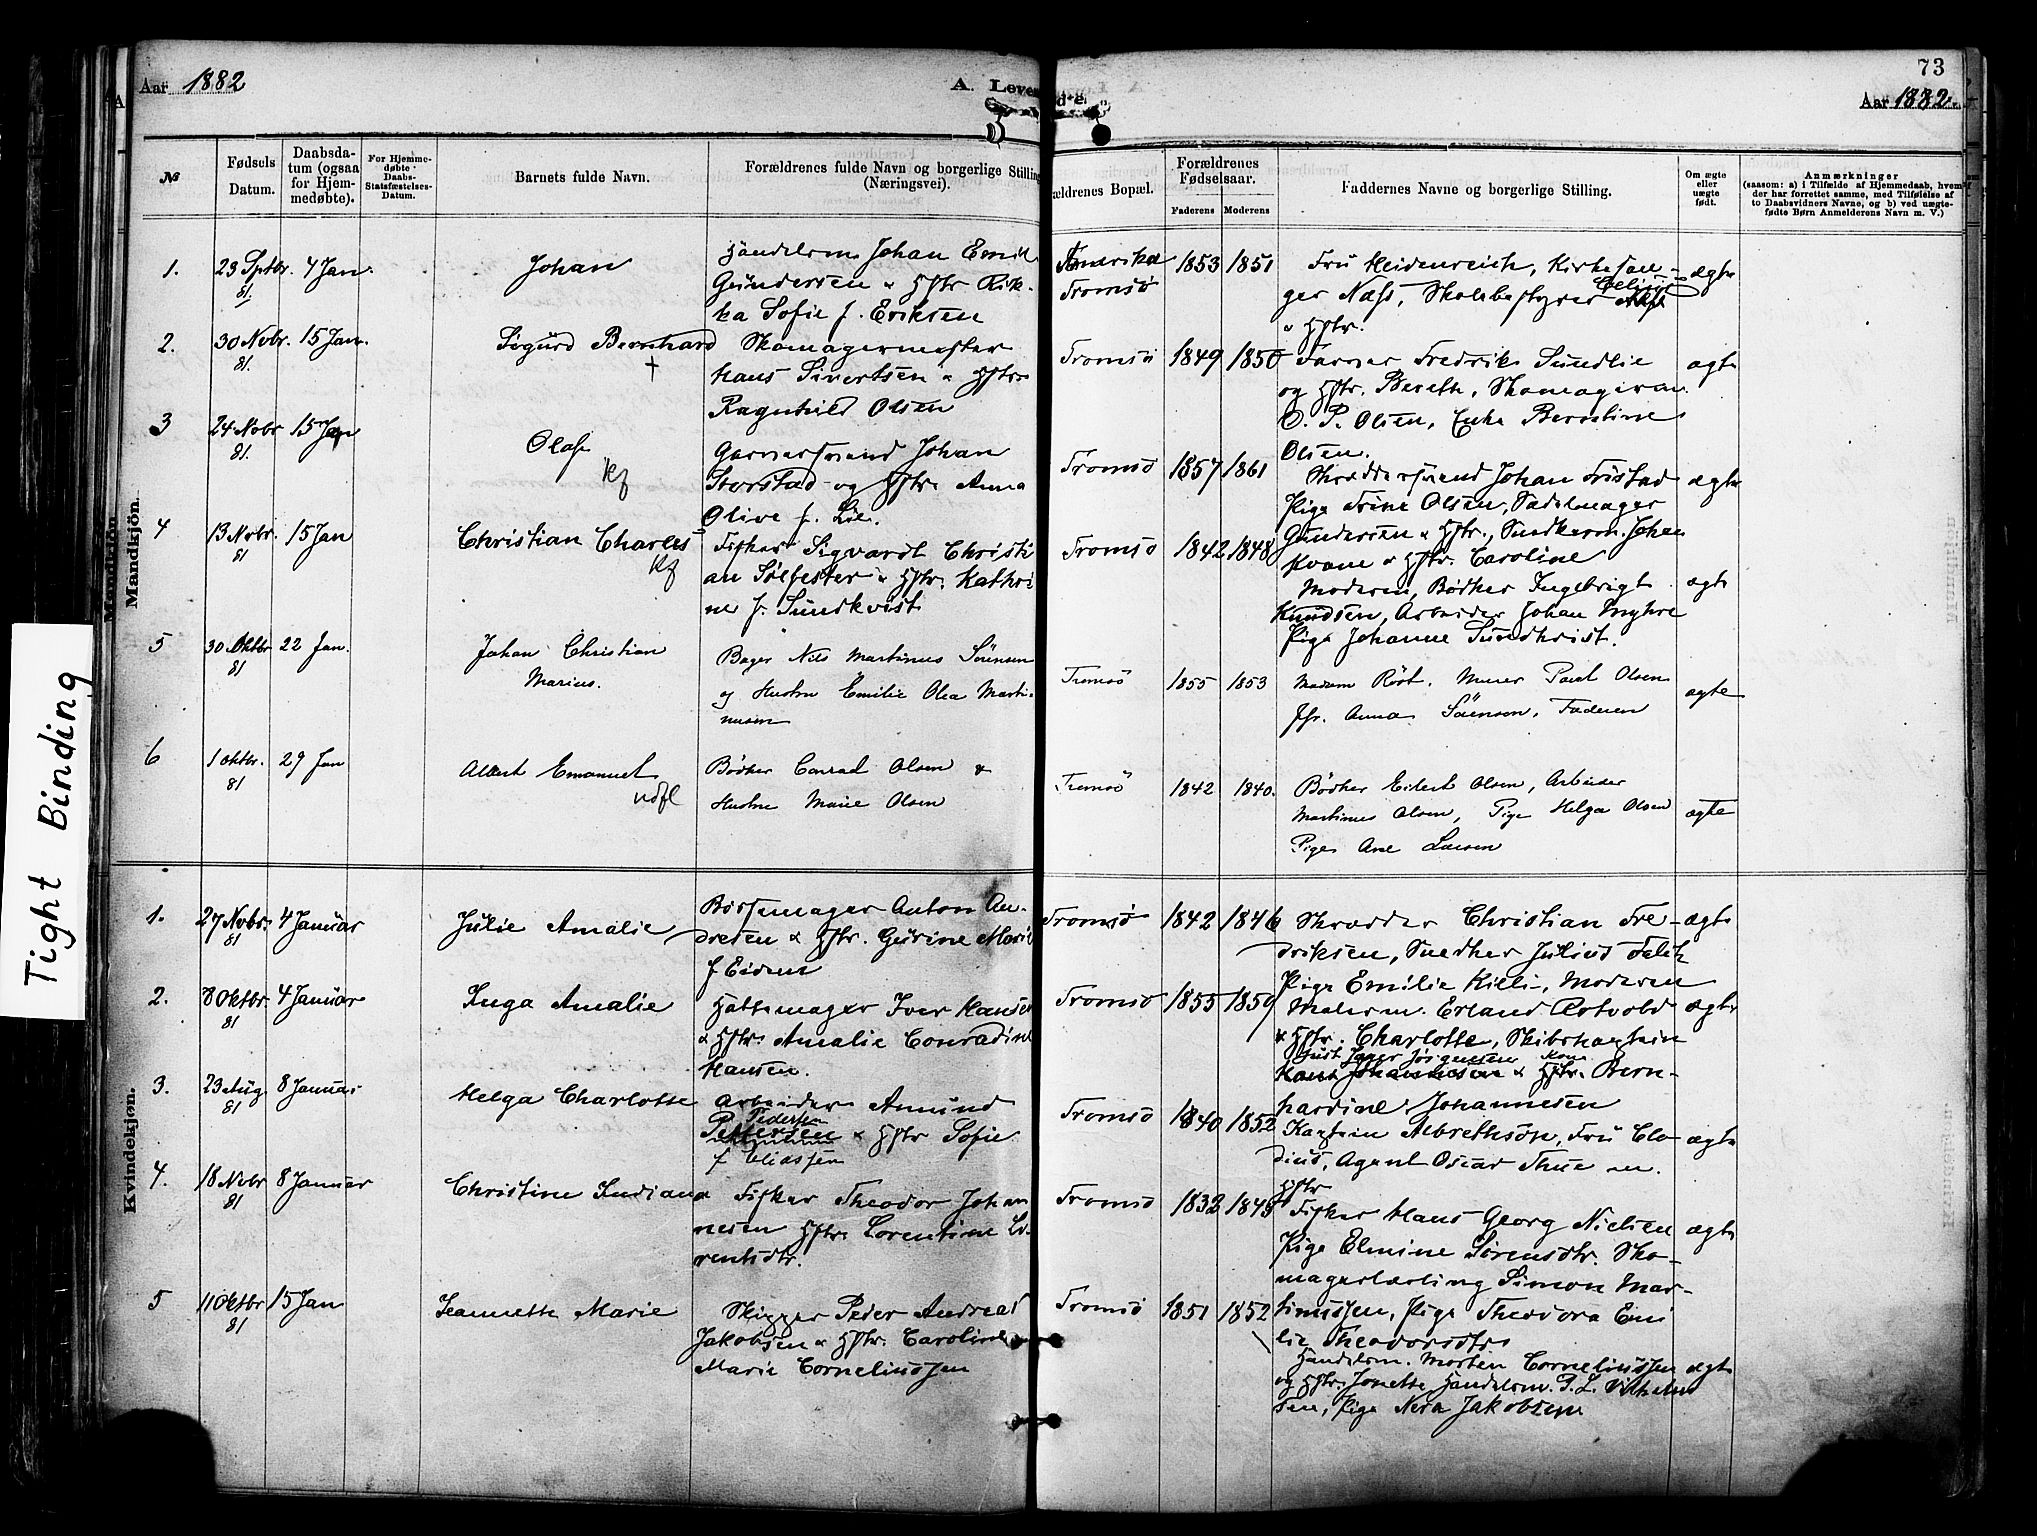 Tight Binding
Aar 1882
A. Leven
73
Aar 1882.
№
Fødsels Datum.
Daabsda-
tum (ogsaa
for Hjem-
medøbte).
For Hjemme-
døbte
Daabs-
Stadfæstelses-
Datum.
Barnets fulde Navn.
Forældrenes fulde Navn og borgerlige Stilling
(Næringsvei).
ældrenes Bopæl.
Forældrenes
Fødselsaar.
Faderens
Moderens
Faddernes Navne og borgerlige Stilling.
Om ægte
eller
uægte
født.
Anmærkninger
(saasom: a) i Tilfælde af Hjemmedaab, hvem
der har forrettet samme, med Tilføielse af
to Daabsvidners Navne, og b) ved uægte-
fødte Børn Anmelderens Navn m. V.)
Mandkjön.
1. 23 Sptbr. 81. 4 Jan. Johan
Handelsm Johan Emil
Gundersen & Hstr Rik-
ka Sofie f. Eriksen
Amerika
Tromsö
1853 1851
Fru Heidenreich, Kirkesan-
ger Næss, Skolebestyrer
& Hstr.
ægte
2. 30 Novbr. 81. 15 Jan. Sigurd Bernhard †
Skomagermester
Hans Sivertsen & Hstr
Ragnhild Olsen
Tromsö 1849 1850
Farver Fredrik Sundlie
og Hstr. Bereth, Skomagersv.
O. P. Olsen, Enke Berntine
Olsen.
ægte
3 24 Novbr 81. 15 Jan Olaf
Garversvend Johan
Storstad og Hstr. Anna
Olive f. Lie.
Tromsö 1857 1861
Skræddersvend Johan Fristad
Pige Trine Olsen, Sadelmager
Gundersen & Hstr., Snedkerm. Johan
Kvane & Hstr. Caroline
ægte
4 13 Novbr. 81 15 Jan Christian Charles
Fisker Sigvardt Christi
an Sölfester & Hstr. Kathri
ne f. Sundkvist
Tromsö 1842 1848
Moderen, Bødker Ingebrigt
Knudsen, Arbeider Johan Myhre
Pige Johanne Sundkvist.
ægte
5 30 Oktbr 81 22 Jan. Johan Christian
Marius.
Bager Nils Martinus Sörensen
og Hustru Emilie Olea Marti-
nusen
Tromsö 1855 1853
Madam Röst. Murer Paul Olsen
Jfr. Anna Sörensen, Faderen
ægte
6 1 Oktbr. 81 29 Jan Albert Emanuel
udfl
Bödker Conrad Olsen &
Hustru Marie Olsen
Tromsö 1842 1840.
Bödker Eilert Olsen, Arbeider
Martinus Olsen, Pige Helga Olsen
Pige Ane Larsen
ægte
Kvindekjön.
1. 27 Novbr. 81 4 Januar Julie Amalie
Börstemager Anton An-
dresen & Hstr. Gurine Marie
f Eidem
Tromsö 1842 1846
Skrædder Christian Fre-
driksen, Snedker Julius Falck
Pige Emilie Killi, Moderen
ægte
2. 8 Oktbr. 81 4 Januar Inga Amalie
Hattemager Iver Hansen
& Hstr. Amalie Conradine
Hansen.
Tromsö 1855 1859
Malerm. Erland Rotvold
& Hstr. Charlotte, Skibskaptein
Just Jörgensen Kone
Hans Johannesen & Hstr. Bern-
hardine Johannesen
ægte
3. 23 Aug 81 8 Januar Helga Charlotte
Arbeider Amund
Pedersen
& Hstr Sofie
f Eliassen
Tromsö 1840 1852
Kaptein Albrethson, Fru Clo-
dius, Agent Oscar Thue m.
Hstr
ægte
4. 18 Novbr 81 8 Januar Christine Indiana
Fisker Theodor Johan
nesen Hstr. Lorentine Lo-
rentsdtr.
Tromsö 1832 1843
Fisker Hans Georg Nielsen
Pige Elmine Sörensdtr. Sko-
magerlærling Simon Mar-
tinussen, Pige Theodora Emi
lie Theodorsdtr
ægte
5 11 Oktbr 81 15 Jan Jeannette Marie
Skipper Peder Andreas
Jakobsen & Hstr. Caroline
Marie Corneliussen
Tromsö 1851 1852
Handelsm. Morten Corneliussen
og Hstr. Jonette Handelsm. P. L. Vilhelm
sen, Pige Nora Jakobsen
ægte